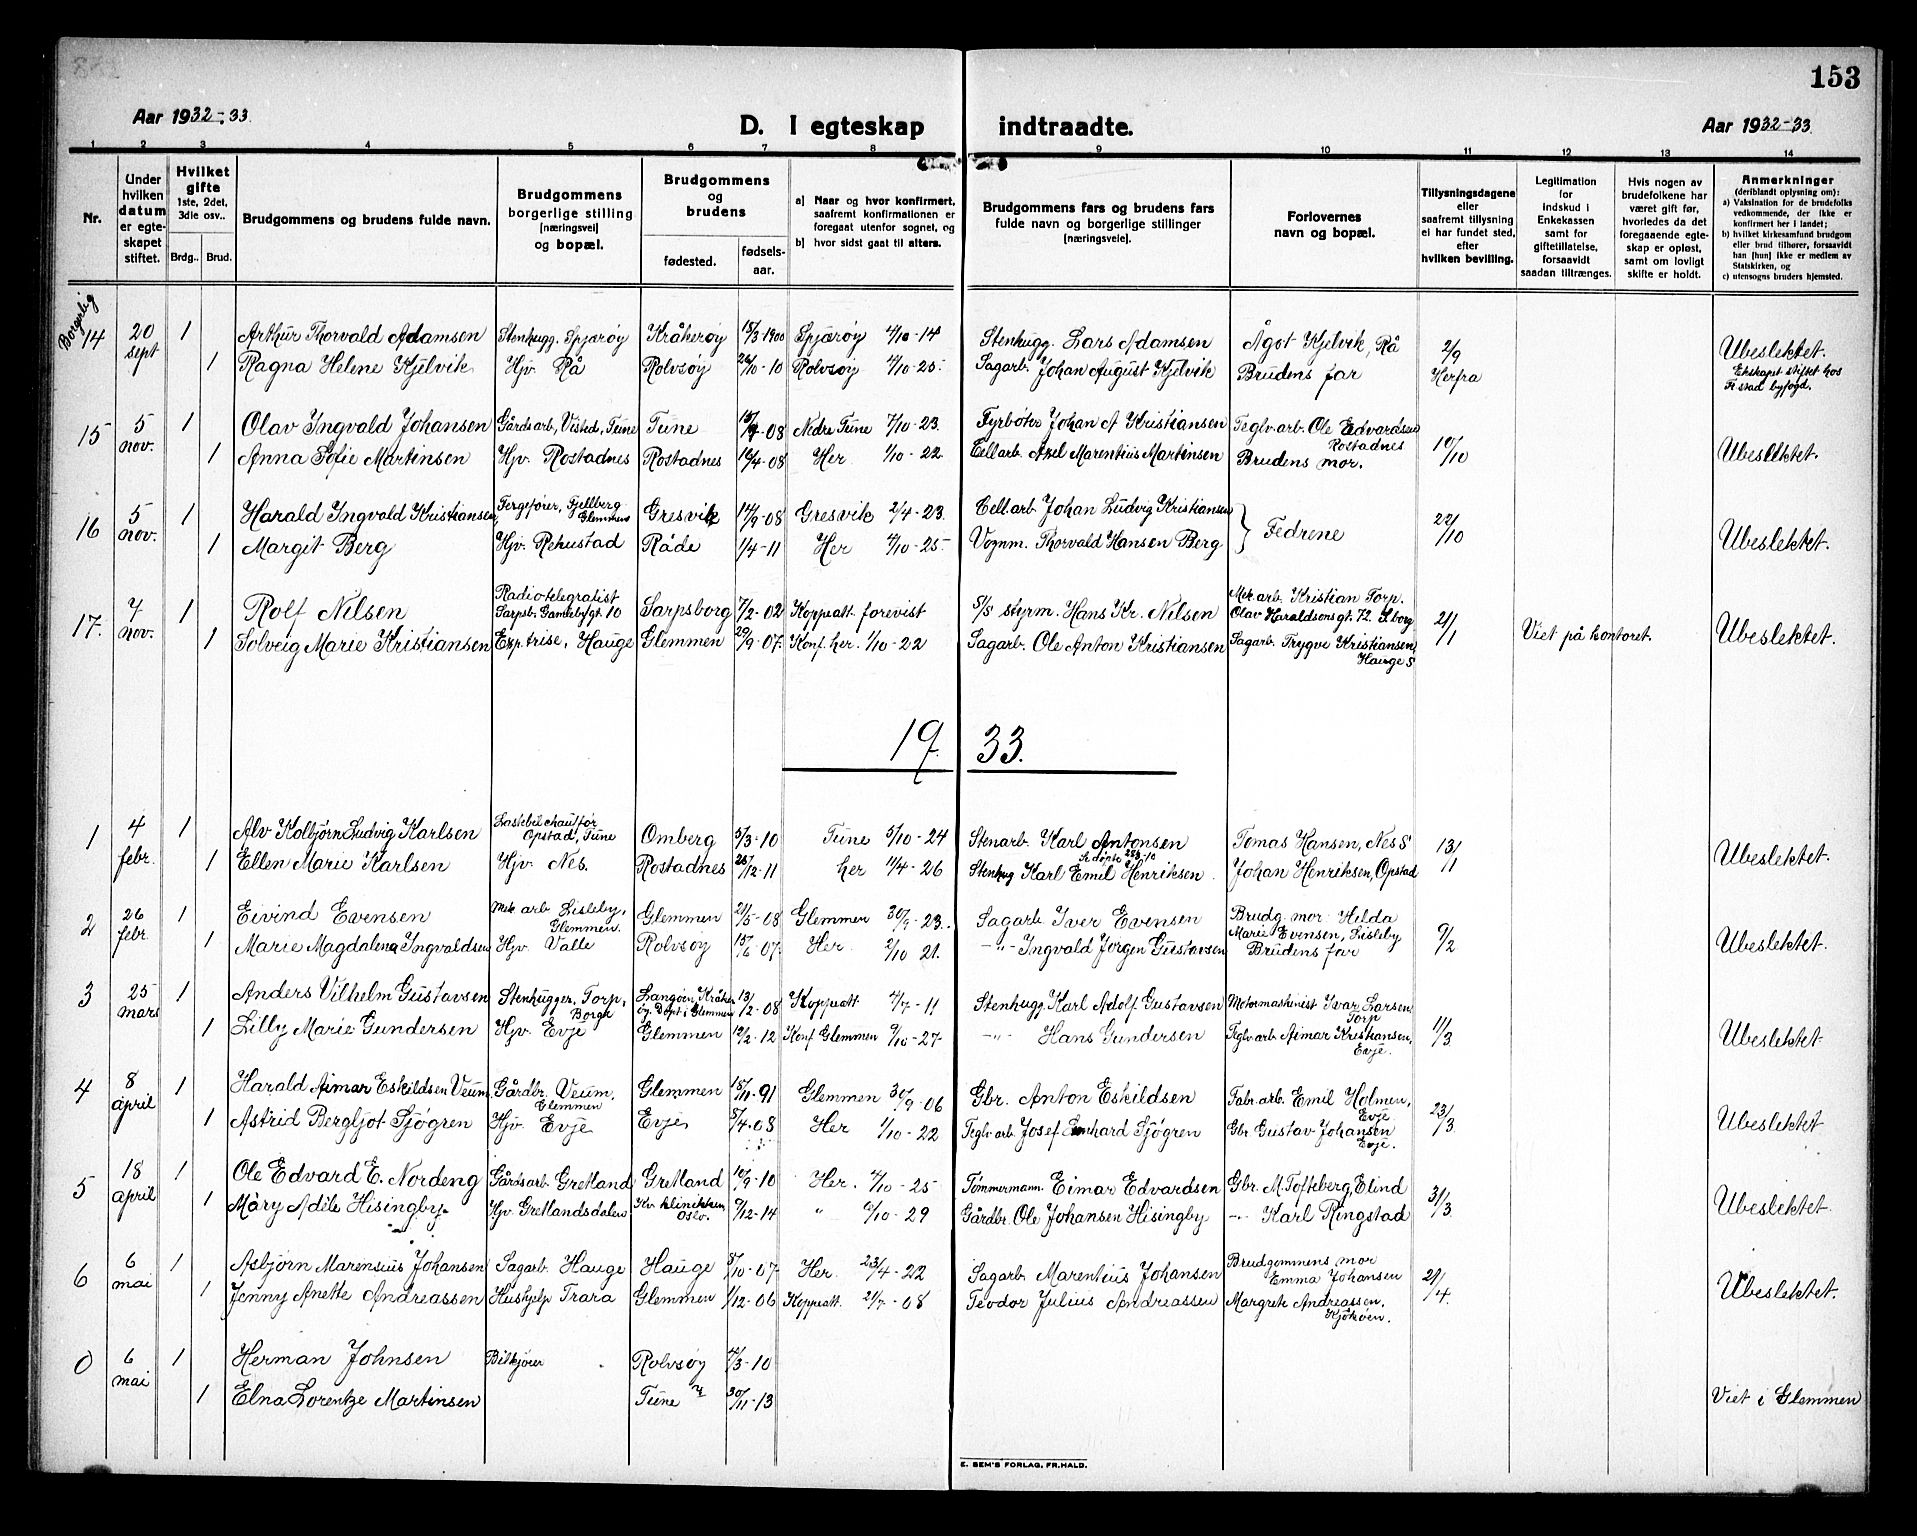 153
Aar 1932-33.
D. I egteskap indtraadte.
Aar 1932-33.
1 2 3 4 5 6 7 8 9 10 11 12 13 14
Nr.
Under hvilken datum er egteskapet stiftet.
Hvilket gifte 1ste, 2det, 3die osv..
Brdg.. Brud.
Brudgommens og brudens fulde navn.
Brudgommens borgerlige stilling (næringsvei) og bopæl.
Brudgommens og brudens
fødested.
fødselsaar.
a) Naar og hvor konfirmert, saafremt konfirmationen er foregaat utenfor sognet, og
b) hvor sidst gaat til alters.
Brudgommens fars og brudens fars fulde navn og borgerlige stillinger (næringsveie).
Forlovernes navn og bopæl.
Tillysningsdagene eller saafremt tillysning ei har fundet sted, efter hvilken bevilling.
Legitimation for indskud i Enkekassen samt for giftetillatelse, forsaavidt saadan tiltrænges.
Hvis nogen av brudefolkene har været gift før, hvorledes da det foregaaende egteskap er opløst, samt om lovlig skifte er holdt.
Anmerkninger (deriblandt oplysning om):
a) Vaksination for de brudefolks vedkommende, der ikke er konfirmert her i landet;
b) hvilket kirkesamfund brudgom eller brud tilhører, forsaavidt han [hun] ikke er medlem av Statskirken, og
c) utensogns bruders hjemsted.
Borgerlig
14 20 sept 1 Arthur Thorvald Adamsen Stenhugg. Spjærøy Kråkerøy 15/3-1900 Spjærøy 4/10-14 Stenhugg. Lars Adamsen Ågot Kjelvik, Rå 2/9 Herfra Ubeslektet.
1 Ragna Helene Kjelvik Hjv. Rå Rolvsøy 26/10-10 Rolvsøy 4/10-25. Sagarb. Johan August Kjelvik Brudens far Ekskapet stiftet hos Fr.stad byfogd.
15 5 nov. 1 Olav Ingvald Johansen Gårdsarb, Visted, Tune Tune 15/9-08 Nedre Tune 7/10-23. Fyrbøter Johan A Kristiansen Teglv.arb. Ole Edvardsen Rostadnes 10/10 Ubeslektet.
1 Anna Sofie Martinsen Hjv. Rostadnes Rostadnes 16/4-08 Her 1/10-22 Cellarb. Axel Marentius Martinsen Brudens mor.
16 5 nov. 1 Harald Ingvald Kristiansen, Fergefører, Fjellberg Glemmen Gresvik 14/9-08 Gresvik 2/4-23. Cellarb Johan Ludvig Kristiansen } Fedrene 22/10 Ubeslektet.
1 Margit Berg Hjv. Rekustad Råde 1/4-11 Her 4/10-25. Vognm. Thorvald Hansen Berg
17. 7 nov. 1 Rolf Nilsen Radiotelegratist Sarpsb. Gamlebygt. 10 Sarpsborg 7/2-02 Koppeatt. forevist S/S styrm. Hans Kr. Nilsen Mek arb. Kristian Torp. Olav Haraldsonsgt. 72. S.borg 21/1 Viet på kontoret. Ubeslektet.
1 Solveig Marie Kristiansen Exp.trise, Hauge Glemmen 29/9-07. Konf. her. 1/10-22 Sagarb. Ole Anton Kristiansen Sagarb. Trygve Kristiansen, Hauge S
1933.
1 4 febr. 1 Alv Kolbjørn Ludvig Karlsen Lastebilchauffør Opstad, Tune Omberg 5/3-10 Tune 5/10-24 Stenarb. Karl Antonsen Tomas Hansen, Nes S 13/1 Ubeslektet.
1 Ellen Marie Karlsen Hjv. Nes. Rostadnes 25/12-11 her 11/4-26 Stenhug Karl Emil Henriksen. Johan Henriksen, Opstad
2 26 febr. 1 Eivind Evensen Mek arb Lisleby, Glemmen. Glemmen 21/5-08 Glemmen 30/9-23.. Sagarb Iver Evensen Brudg. mor Hilda Marie Evensen, Lisleby 9/2 Ubeslektet.
1 Marie Magdalena Ingvaldsen Hjv. Valle Rolvsøy 15/6-07. Her. 2/10 21. -"- Ingvald Jørgen Gustavsen Brudens far
3 25 mars 1 Anders Vilhelm Gustavsen Stenhugger, Torp, Borge Langøen, Kråkerøy. Døpt i Glemmen 13/2-08 Koppeatt. 4/7-11 Stenhugg Karl Adolf Gustavsen Motormaskinist Ivar Larsen, Torp 11/3 Ubeslektet
1 Lilly Marie Gundersen Hjv. Evje Glemmen 12/2-12 Konf Glemmen 9/10-27- -"- Hans Gundersen Teglv arb Aimar Kristiansen, Evje.
4 8 april 1 Harald Aimar Eskildsen Veum Gårdbr. Veum, Glemmen Glemmen 18/11-91 Glemmen 30/9-06 Gbr. Anton Eskildsen Fabr. arb. Emil Holmen, Evje 23/3 Ubeslektet
1 Astrid Bergljot Sjøgren Hjv. Evje Evje 5/4-08 Her 1/10-22 Teglv arb Josef Sjøgren Gbr Gustav Johansen Evje.
5 18 april 1 Ole Edvard E. Nordeng Gårdsarb. Gretland Gretland 10/9-10 Her. 4/10-25 Tømmermann. Eimar Edvardsen Gbr. M. Tofteberg, Elind 31/3 Ubeslektet.
1 Mary Adele Hisingby Hjv. Gretlandsdalen Kv. klinikken, Oslo. 7/12-14 " 6/10-29 Gårdbr. Ole Johansen Hisingby -"- Karl Ringstad
6 6 mai 1 Asbjørn Marensius Johansen Sagarb. Hauge Hauge 8/10-07. Her. 23/4-22 Sagarb. Marentius Johansen Brudgommens mor Emma Johansen 21/4. Ubeslektet.
1 Jenny Anette Andreassen Hushjelp Trara Glemmen 1/12-06 Koppeatt. 21/7-08 Teodor Julius Andreassen Margrete Andreassen, Kjøkøen.
0 6 mai 1 Herman Johnsen Bilkjører Rolvsøy 4/3-10
1 Elna Lorentze Martinsen Tune 30/11-13 Viet i Glemmen
E. SEM'S FORLAG, FR.HALD.